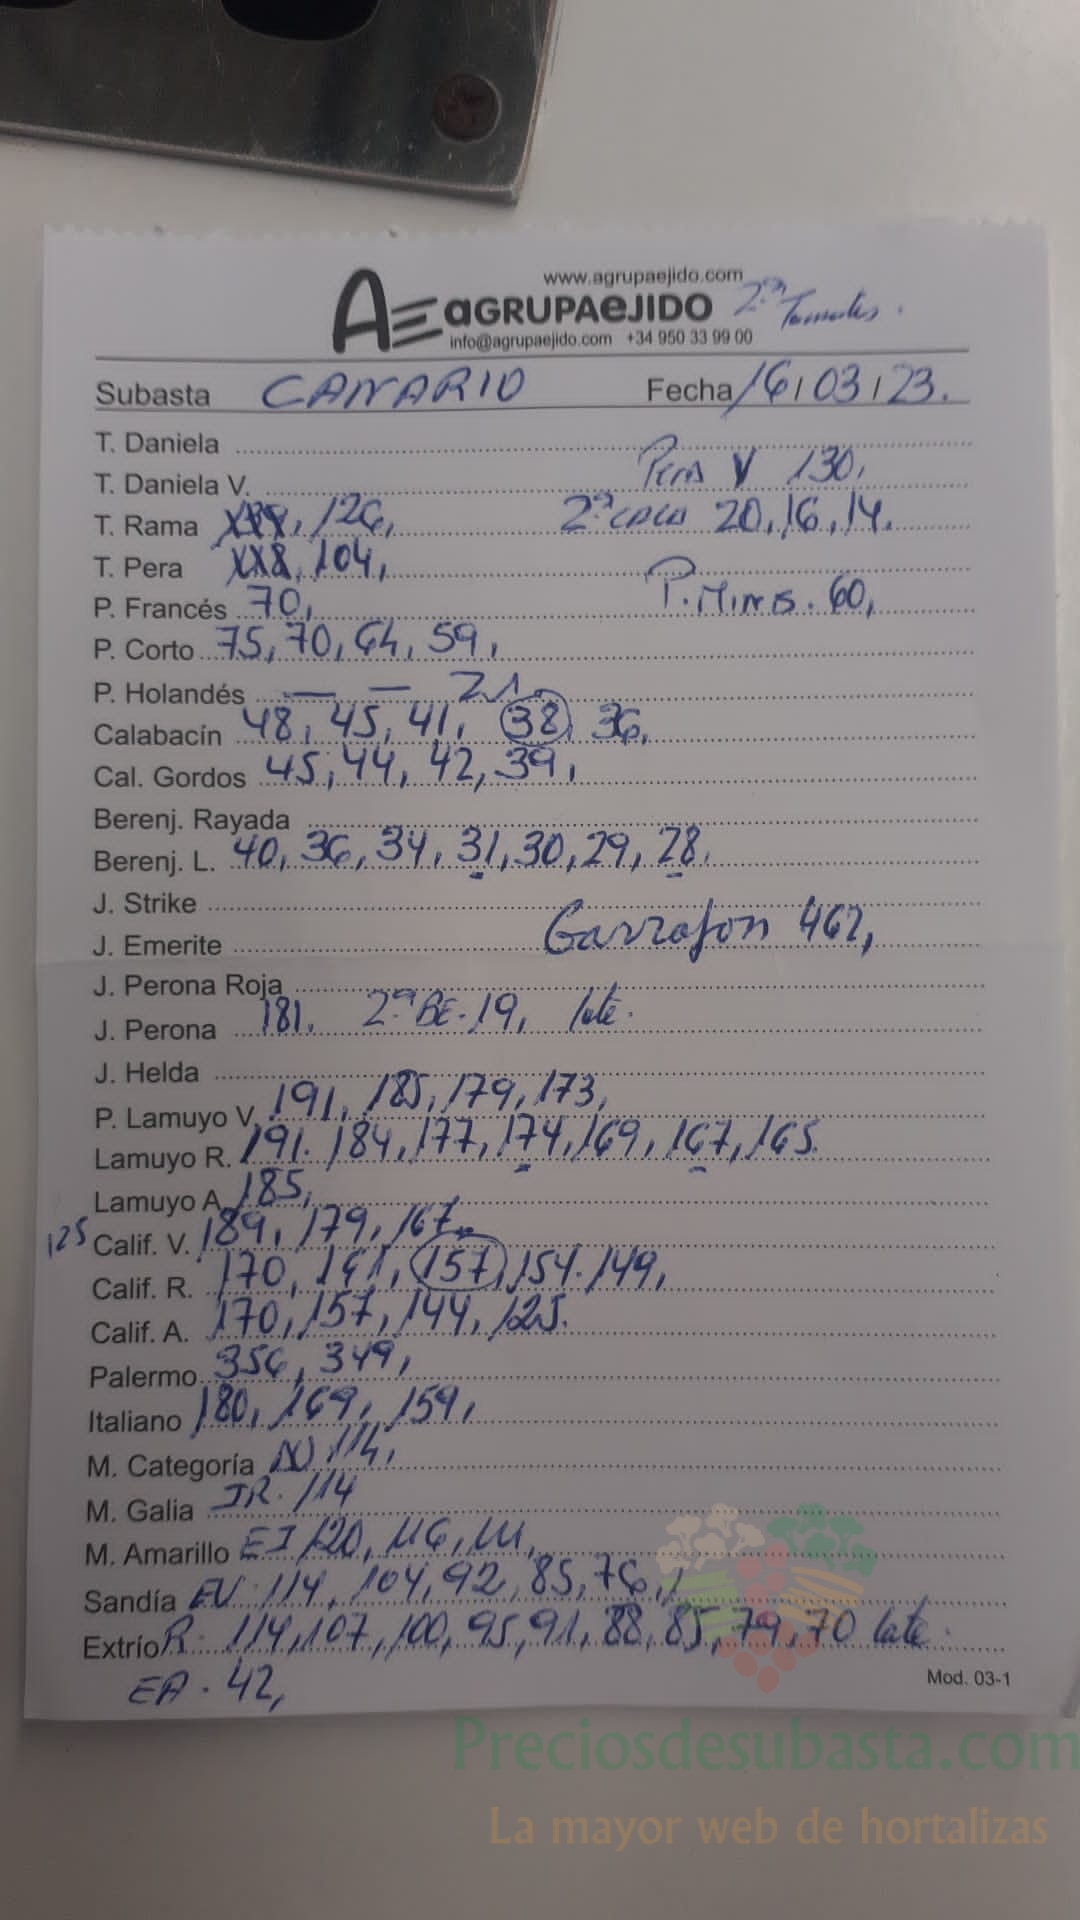 www.agrupaejido.com
AGRUPAEJIDO 2ª Tomates.
info@agrupaejido.com +34 950 33 99 00
Subasta CANARIO Fecha 16/03/23.
T. Daniela
T. Daniela V. Pera V 130,
T. Rama 126, 2ª COCO 20, 16, 14.
T. Pera 104,
P. Francés 70, P. Minis. 60,
P. Corto 75, 70, 64, 59,
P. Holandés — — 21.
Calabacín 48, 45, 41, 38, 36,
Cal. Gordos 45, 44, 42, 39,
Berenj. Rayada
Berenj. L. 40, 36, 34, 31, 30, 29, 28,
J. Strike
J. Emerite Garrafon 462,
J. Perona Roja
J. Perona 181. 2ª BE. 19, lote.
J. Helda
P. Lamuyo V. 191, 185, 179, 173,
Lamuyo R. 191. 184, 177, 174, 169, 167, 165.
Lamuyo A. 185,
125 Calif. V. 189, 179, 167
Calif. R. 170, 161, 157, 154. 149,
Calif. A. 170, 157, 144, 125.
Palermo 356, 349,
Italiano 180, 169, 159,
M. Categoría 114,
M. Galia IR. 114
M. Amarillo EI 120, 116, 111,
Sandía EV. 114, 104, 92, 85, 76,
Extrío R. 114, 107, 100, 95, 91, 88, 85, 79, 70 lote.
EA. 42,
Mod. 03-1
Preciosdesubasta.com
La mayor web de hortalizas